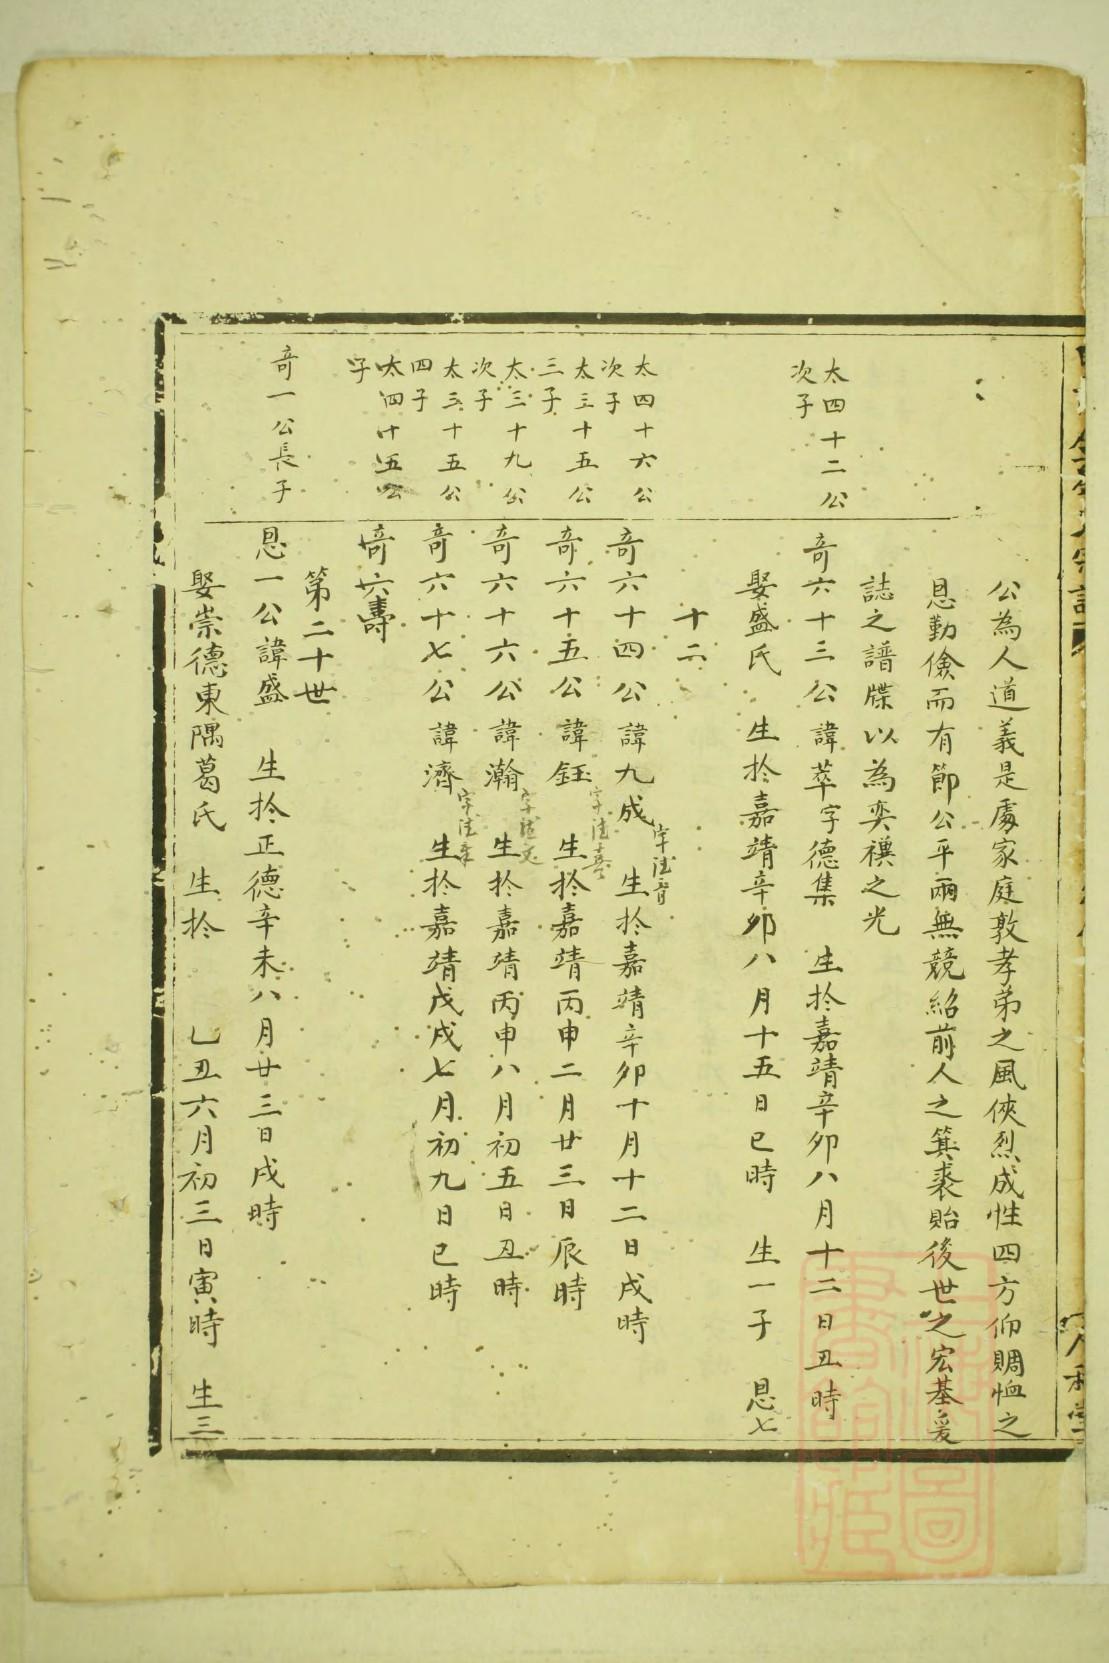 公為人道義是處家庭敦孝弟之風俠烈成性四方仰賙恤之
恩勤儉而有節公平兩無競紹前人之箕裘貽後世之宏基爰
誌之譜牒以為奕禩之光
太四十二公
次子
奇六十三公諱萃字德集 生於嘉靖辛卯八月十二日丑時
娶盛氏 生於嘉靖辛卯八月十五日巳時 生一子 恩七
十二
太四十六公
次子
奇六十四公諱九成 生於嘉靖辛卯十月十二日戌時
太三十五公
三子
奇六十五公諱鈺 生於嘉靖丙申二月廿三日辰時
太三十九公
次子
奇六十六公諱瀚 生於嘉靖丙申八月初五日丑時
太三十五公
四子
奇六十七公諱濟 生於嘉靖戊戌七月初九日巳時
太四十五公
子
奇六壽
第二十世
奇一公長子
恩一公諱盛 生於正德辛未八月廿三日戌時
娶崇德東隅葛氏 生於 乙丑六月初三日寅時 生三